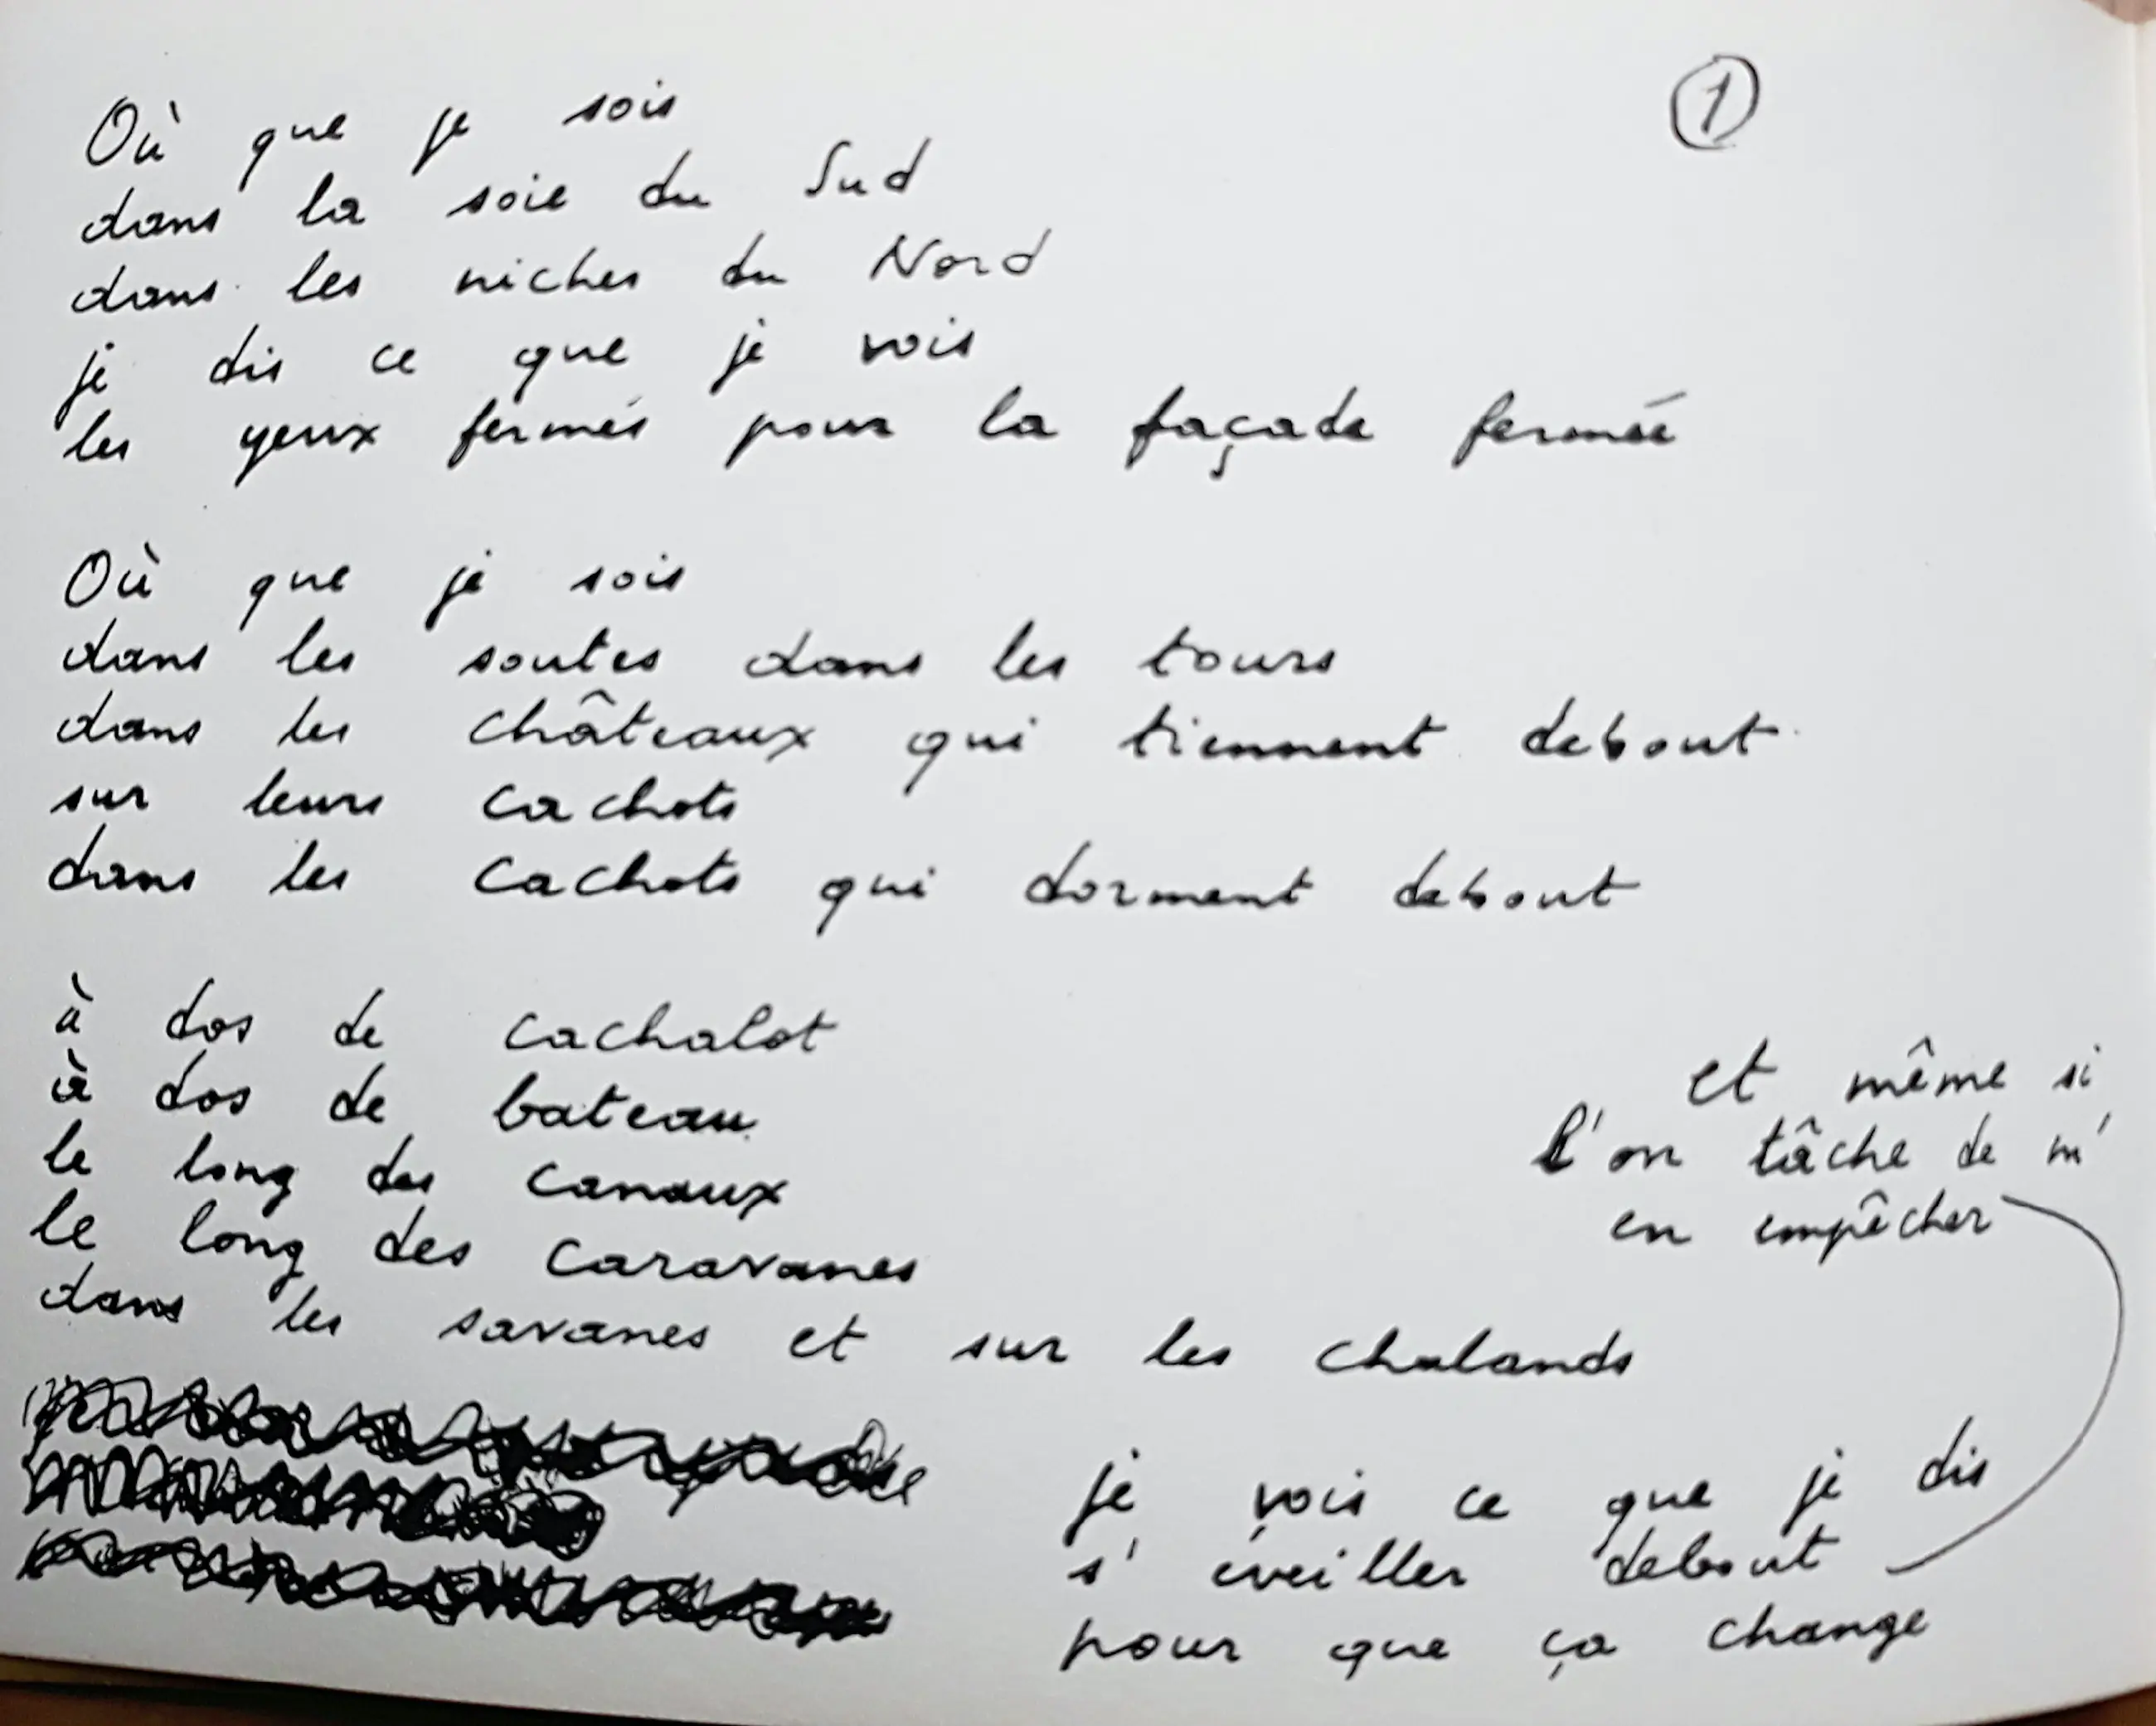 1
Où que je sois
dans la soie du Sud
dans les niches du Nord
je dis ce que je vois
les yeux fermés pour la façade fermée
Où que je sois
dans les soutes dans les tours
dans les châteaux qui tiennent debout
sur leurs cachots
dans les cachots qui dorment debout
à dos de cachalot
à dos de bateau
le long des canaux
le long des caravanes
dans les savanes et sur les chalands
et même si
l'on tâche de m'
en empêcher
je vois ce que je dis
s'éveiller debout
pour que ça change